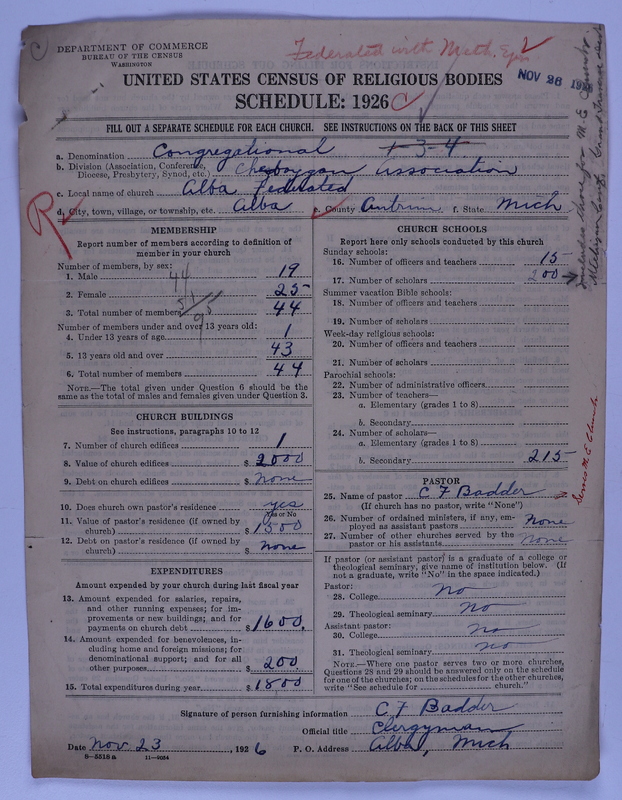 DEPARTMENT OF COMMERCE
BUREAU OF THE CENSUS
WASHINGTON
Federated with Meth. Epis.
NOV 26
UNITED STATES CENSUS OF RELIGIOUS BODIES
SCHEDULE: 1926
FILL OUT A SEPARATE SCHEDULE FOR EACH CHURCH. SEE INSTRUCTIONS ON THE BACK OF THIS SHEET
a. Denomination Congregational 1-3-4
b. Division (Association, Conference, Diocese, Presbytery, Synod, etc.) Cheboygan Association
c. Local name of church Alba Federated
d. City, town, village, or township, etc. Alba e. County Antrim f. State Mich
R
MEMBERSHIP
Report number of members according to definition of member in your church
Number of members, by sex:
1. Male 19
44
2. Female 25
51
3. Total number of members 44
95
Number of members under and over 13 years old:
4. Under 13 years of age 1
5. 13 years old and over 43
6. Total number of members 44
NOTE.—The total given under Question 6 should be the same as the total of males and females given under Question 3.
CHURCH BUILDINGS
See instructions, paragraphs 10 to 12
7. Number of church edifices 1
8. Value of church edifices $ 2000
9. Debt on church edifices $ None
10. Does church own pastor's residence yes
Yes or No
11. Value of pastor's residence (if owned by church) $ 1500
12. Debt on pastor's residence (if owned by church) $ none
EXPENDITURES
Amount expended by your church during last fiscal year
13. Amount expended for salaries, repairs, and other running expenses; for improvements or new buildings; and for payments on church debt $ 1600.
14. Amount expended for benevolences, including home and foreign missions; for denominational support; and for all other purposes $ 200
15. Total expenditures during year $ 1800
CHURCH SCHOOLS
Report here only schools conducted by this church
Sunday schools:
16. Number of officers and teachers 15
17. Number of scholars 200
Summer vacation Bible schools:
18. Number of officers and teachers
19. Number of scholars
Week-day religious schools:
20. Number of officers and teachers
21. Number of scholars
Parochial schools:
22. Number of administrative officers
23. Number of teachers—
a. Elementary (grades 1 to 8)
b. Secondary
24. Number of scholars—
a. Elementary (grades 1 to 8)
b. Secondary 215
PASTOR
25. Name of pastor C F Badder
(If church has no pastor, write "None")
26. Number of ordained ministers, if any, employed as assistant pastors None
27. Number of other churches served by the pastor or his assistants None
If pastor (or assistant pastor) is a graduate of a college or theological seminary, give name of institution below. (If not a graduate, write "No" in the space indicated.)
Pastor:
28. College No
29. Theological seminary No
Assistant pastor:
30. College No
31. Theological seminary No
NOTE.—Where one pastor serves two or more churches, Questions 28 and 29 should be answered only on the schedule for one of the churches; on the schedules for the other churches, write "See schedule for church."
Signature of person furnishing information C F Badder
Official title Clergyman
Date Nov 23, 1926 P. O. Address Alba, Mich
8-5518a 11-9054